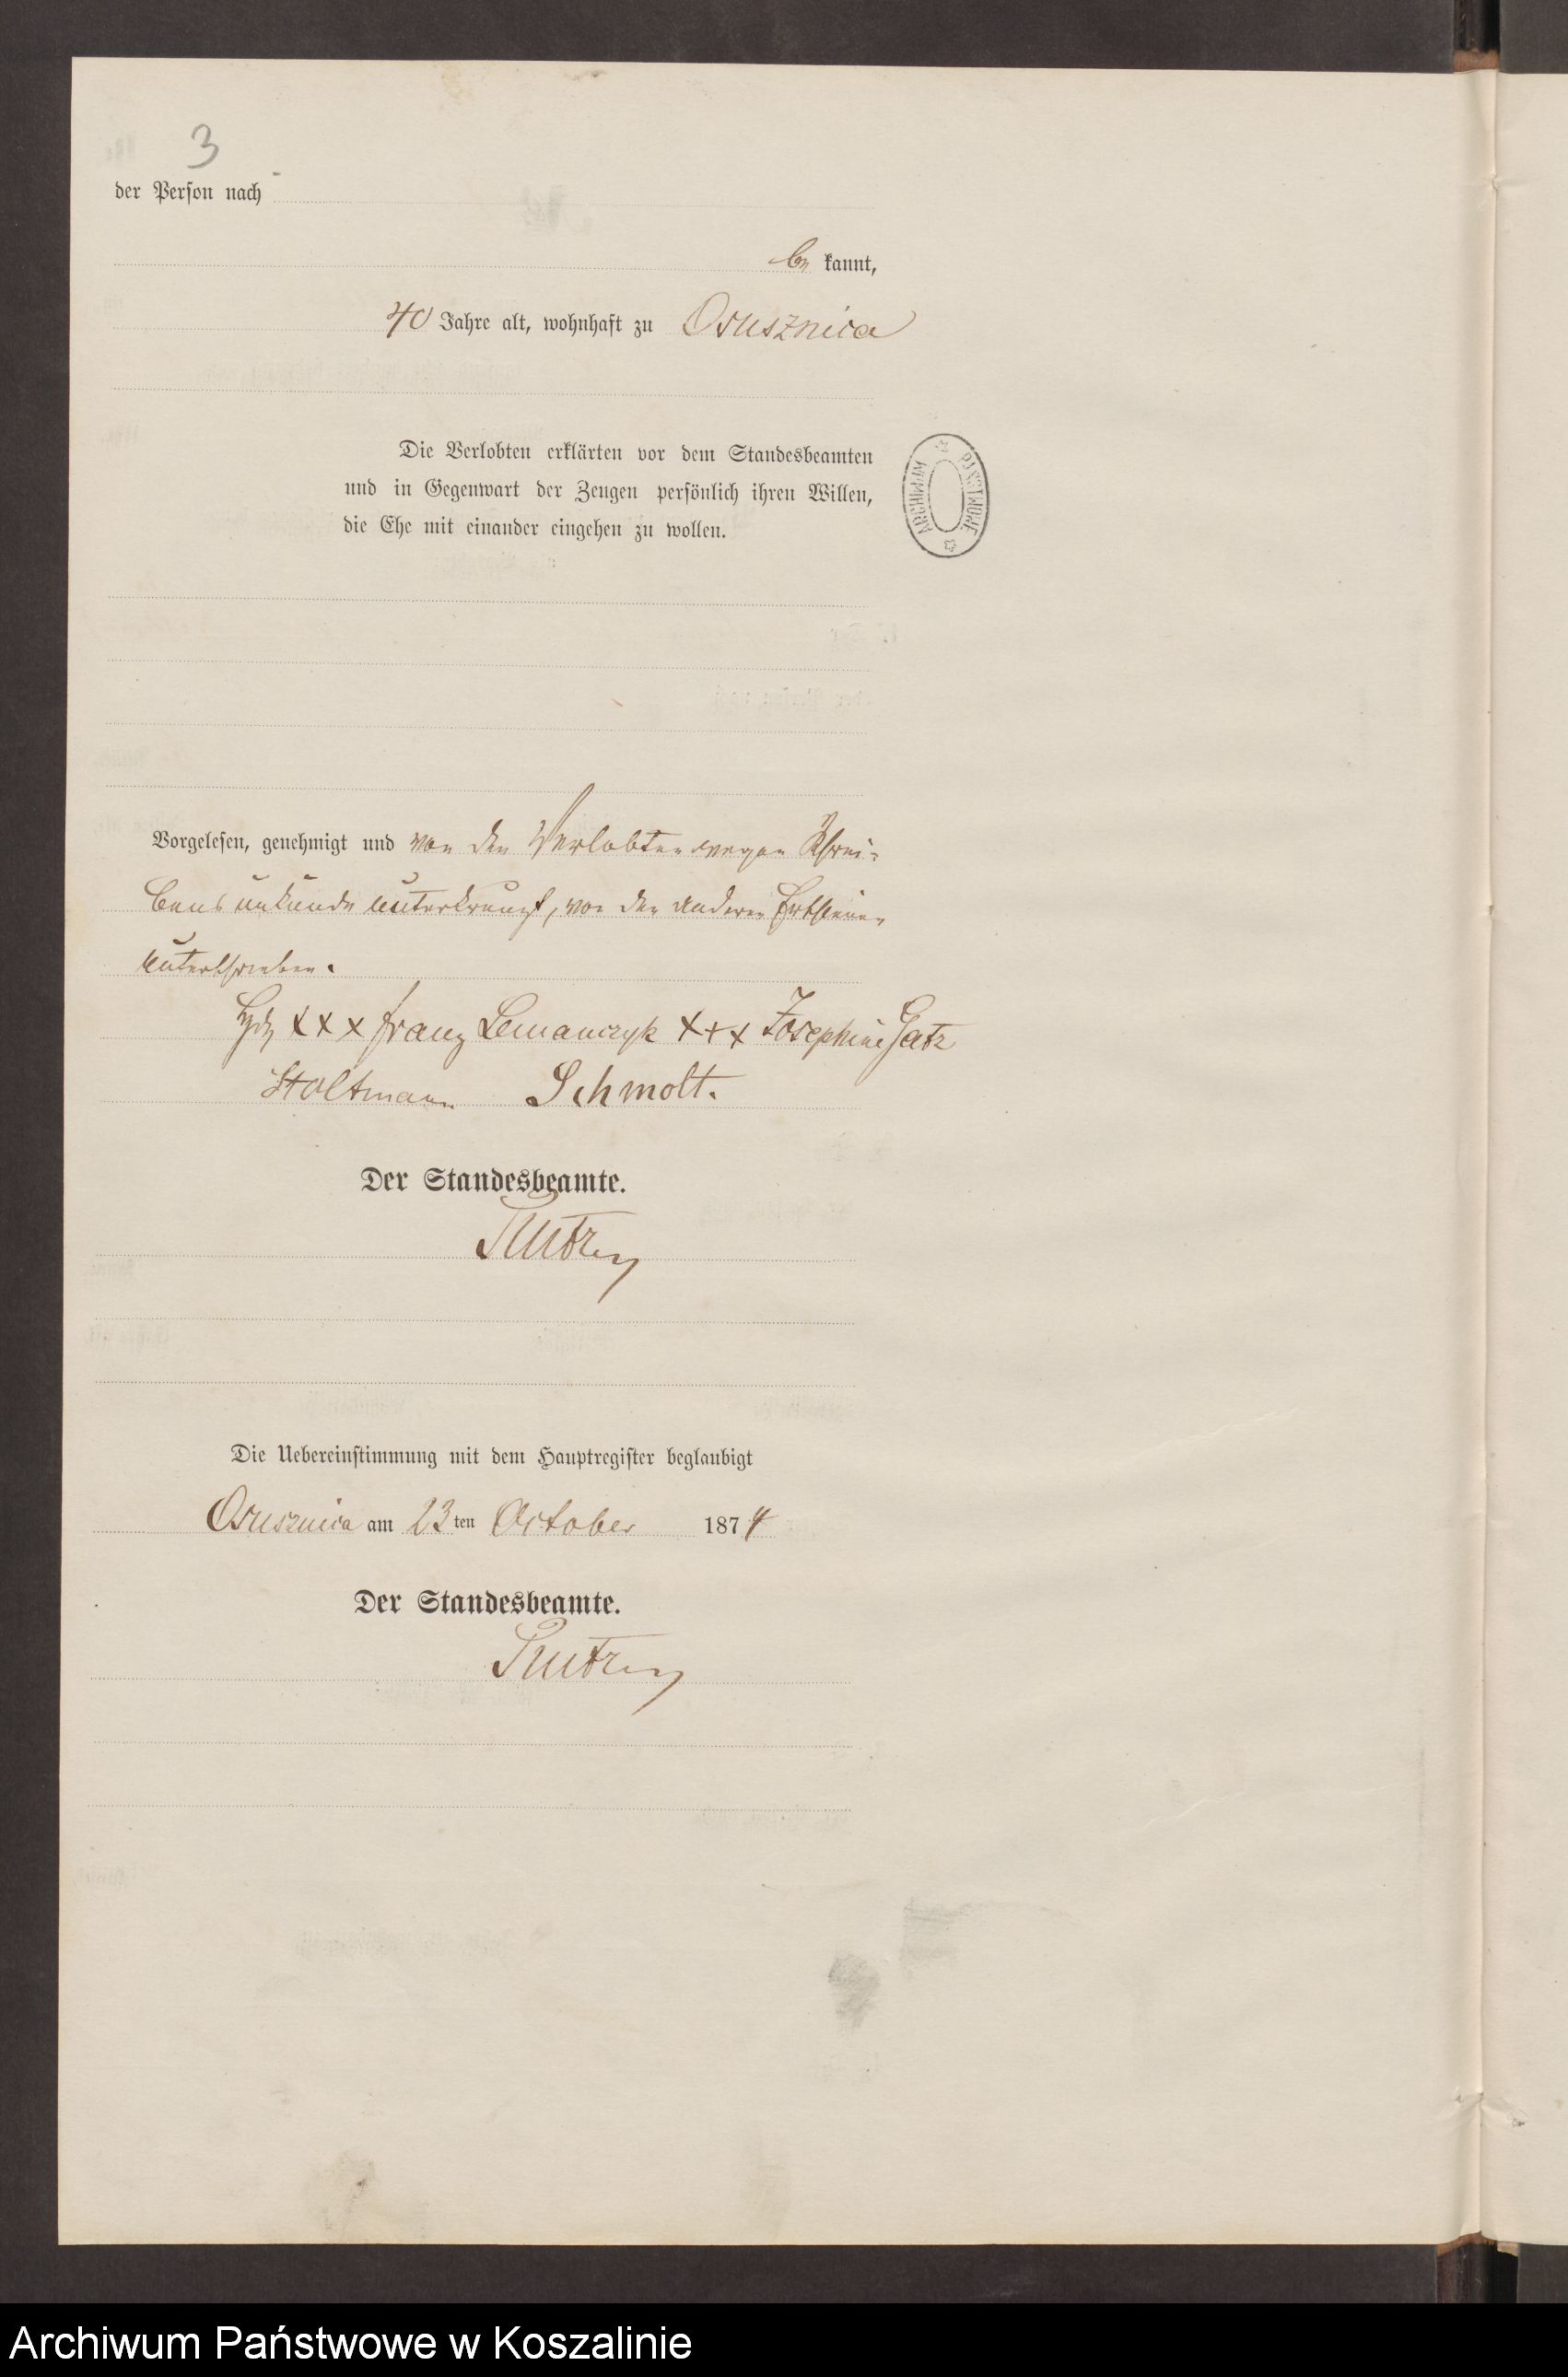 3
der Person nach
be kannt,
40 Jahre alt, wohnhaft zu Osusznica
Die Verlobten erklärten vor dem Standesbeamten
und in Gegenwart der Zeugen persönlich ihren Willen,
die Ehe mit einander eingehen zu wollen.
ARCHIWUM PAŃSTWOWE
Vorgelesen, genehmigt und von den Verlobten wegen Schrei-
bensunkunde unterkreuzt, von den anderen Erschienenen
unterschrieben.
Hdz XXX Franz Lemanczyk XXX Josephine Gatz
Stoltmann Schmolt.
Der Standesbeamte.
Die Uebereinstimmung mit dem Hauptregister beglaubigt
Osusznica am 23 ten October 1874
Der Standesbeamte.
Archiwum Państwowe w Koszalinie